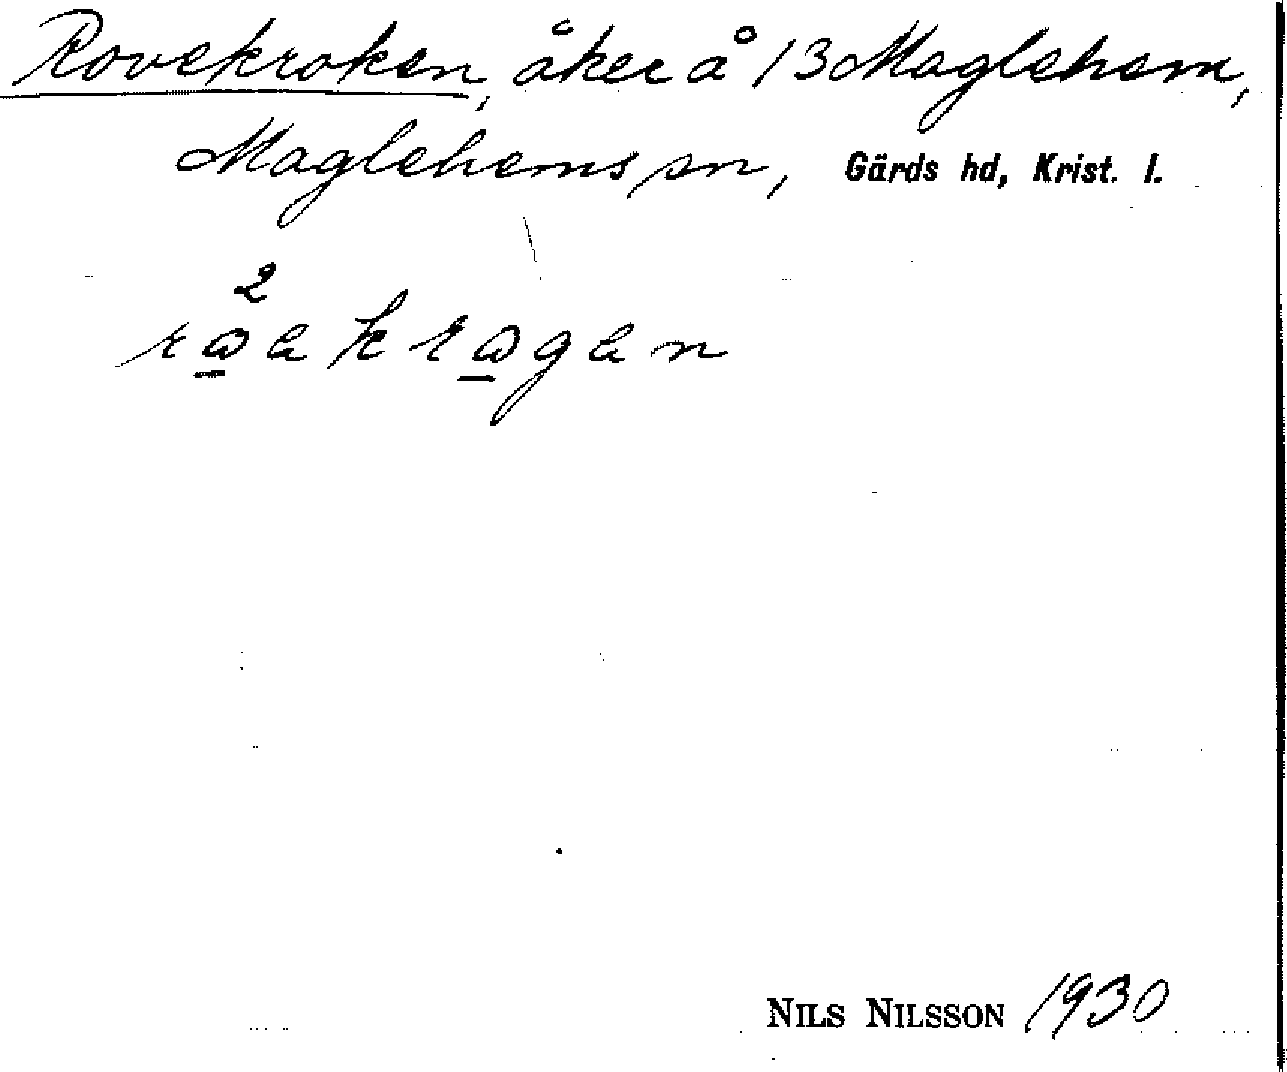 Rovekroken, åker å 13 Maglehem,
Maglehems sn, Gärds hd, Krist. l.
NILS NILSSON 1930